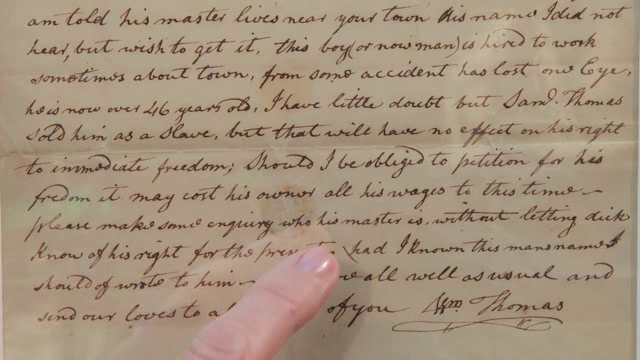 am told his master lives near your town his name I did not
hear, but wish to get it, this boy (or now man) is hired to work
sometimes about town, from some accident has lost one Eye,
he is now over 46 years old, I have little doubt but Saml. Thomas
sold him as a slave, but that will have no effect on his right
to immediate freedom; Should I be obliged to petition for his
fredom it may cost his owner all his wages to this time —
please make some enquiry who his master is, without letting dick
Know of his right for the had I known this mans name I
should of wrote to him — all well as usual and
send our loves to of you Wm Thomas